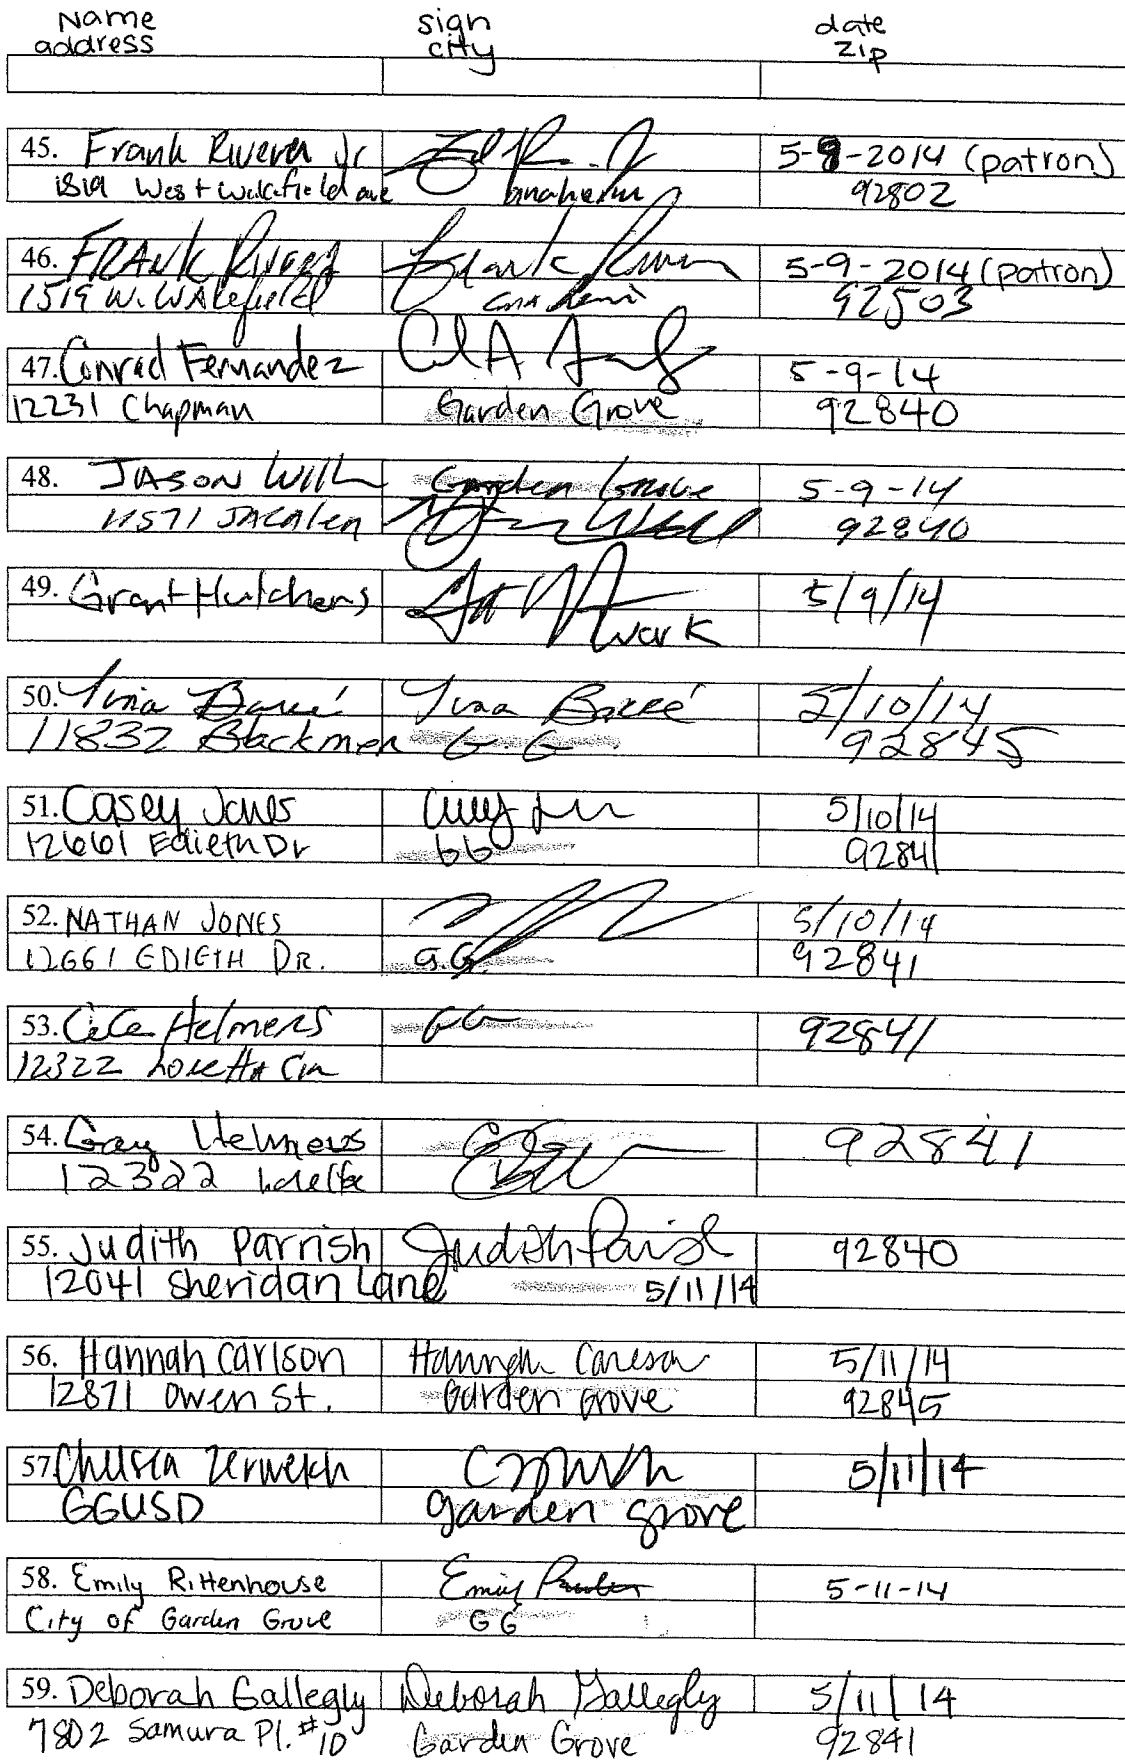 Name sign date
address city zip
45. Frank Rivera Jr 5-9-2014 (patron)
1519 West Wakefield ave anaheim 92802
46. FRANK RIVERA Frank Rivera 5-9-2014 (patron)
1519 W. WAKefield 92503
47. Conrad Fernandez 5-9-14
12231 Chapman Garden Grove 92840
48. JASON WILL Garden Grove 5-9-14
11571 JACALEN 92840
49. Grant Hutchens 5/9/14
work
50. Tina Barré Tina Barré 5/10/14
11832 Blackmer G.G. 92845
51. Casey Jones 5/10/14
12661 Edieth Dr GG 92841
52. NATHAN JONES 5/10/14
12661 EDIETH DR. G.G. 92841
53. CeCe Helmers GG 92841
12322 Loretta Cir
54. Gary Helmers 92841
12322 Loretta
55. Judith Parrish Judith Parrish 92840
12041 Sheridan Lane 5/11/14
56. Hannah Carlson Hannah Carlson 5/11/14
12871 Owen St. Garden Grove 92845
57. Chelsea Zerwekh 5/11/14
GGUSD garden grove
58. Emily Rittenhouse Emily 5-11-14
City of Garden Grove GG
59. Deborah Gallegly Deborah Gallegly 5/11/14
7802 Samura Pl. #10 Garden Grove 92841